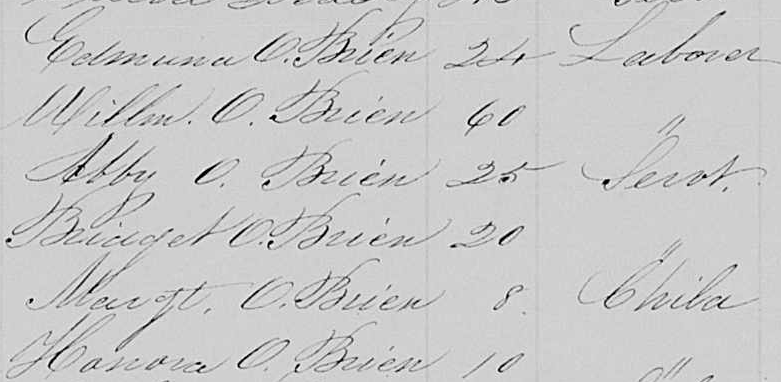 Edmund O. Brien 24 Laborer
Willm. O. Brien 60 "
Abby O. Brien 25 Servt.
Bridget O. Brien 20 "
Margt. O. Brien 8 Child
Honora O. Brien 10 "